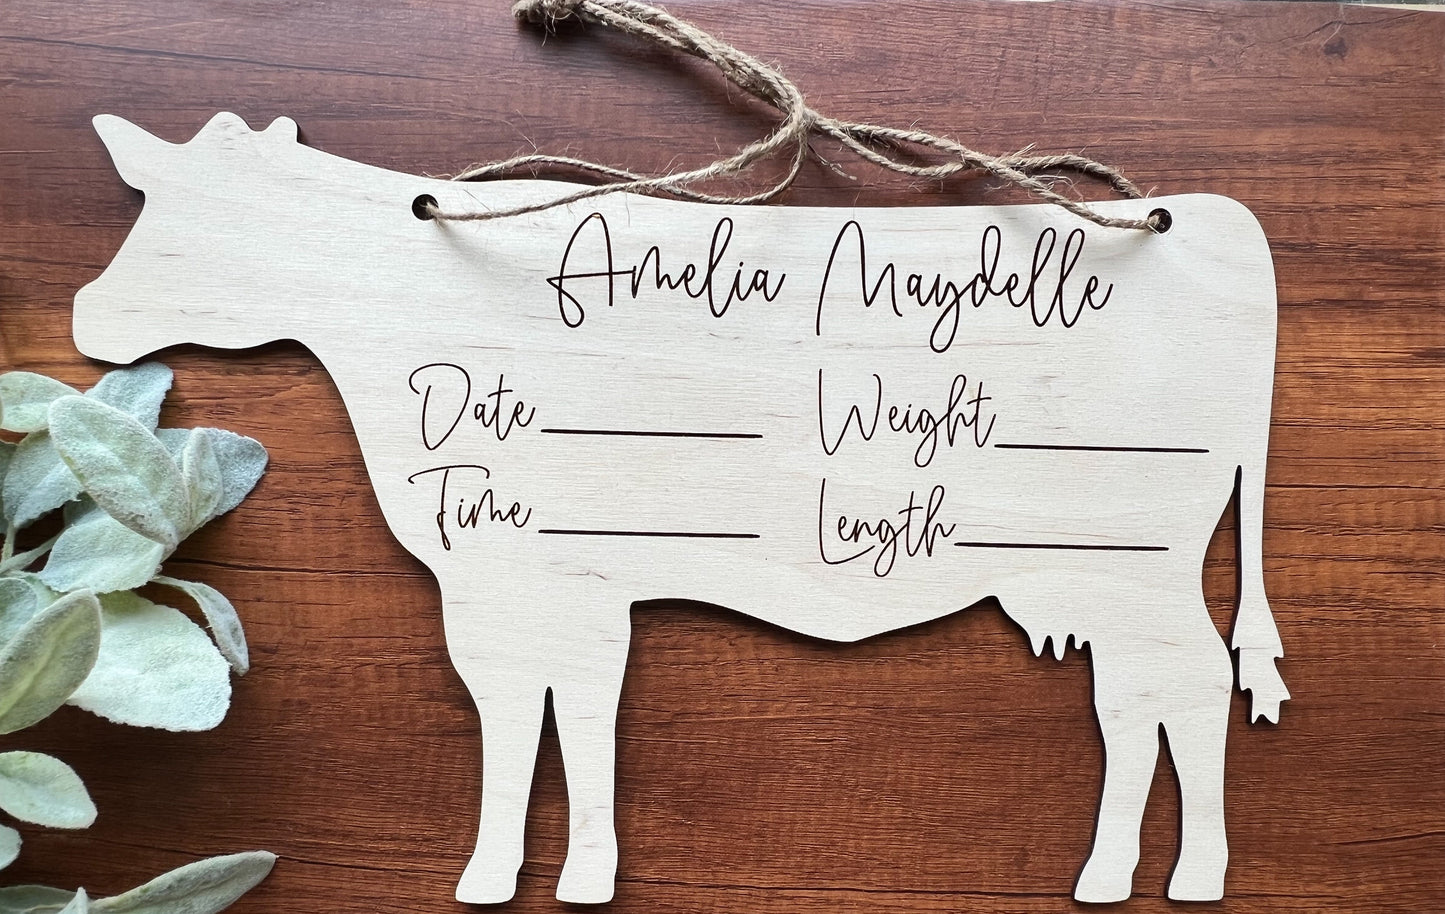 Amelia Maydelle
Date__________ Weight__________
Time__________ Length__________